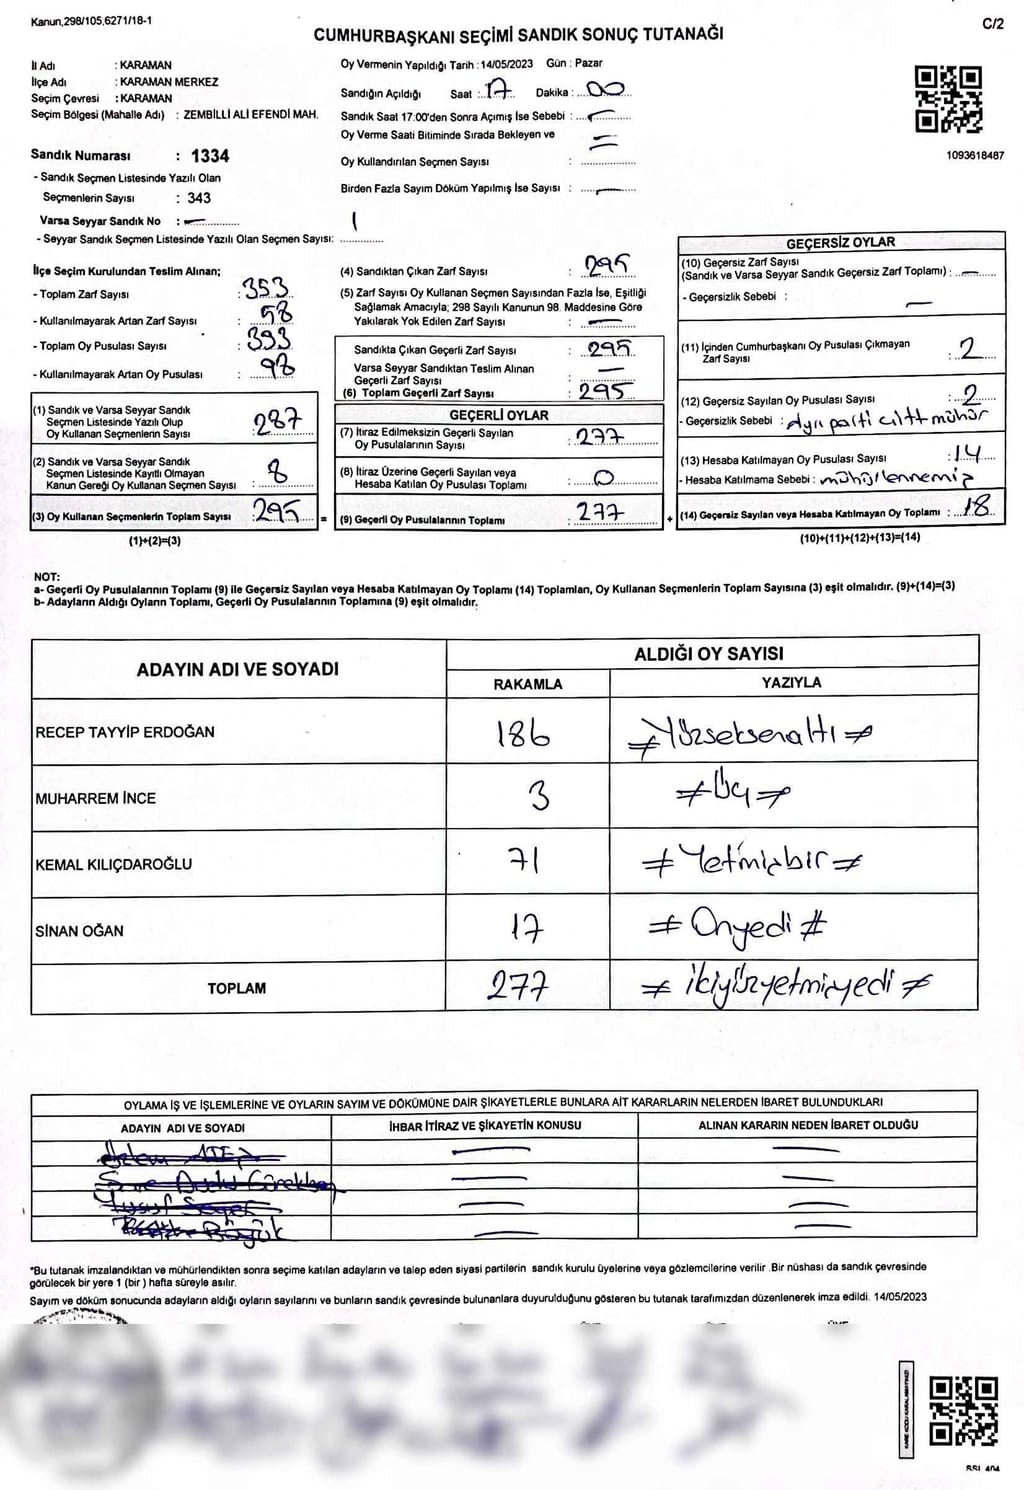 Kanun,298/105,6271/18-1
C/2
CUMHURBAŞKANI SEÇİMİ SANDIK SONUÇ TUTANAĞI
İl Adı : KARAMAN
İlçe Adı : KARAMAN MERKEZ
Seçim Çevresi : KARAMAN
Seçim Bölgesi (Mahalle Adı) : ZEMBİLLİ ALİ EFENDİ MAH.
Sandık Numarası : 1334
- Sandık Seçmen Listesinde Yazılı Olan
Seçmenlerin Sayısı : 343
Varsa Seyyar Sandık No : —
- Seyyar Sandık Seçmen Listesinde Yazılı Olan Seçmen Sayısı: ...............
Oy Vermenin Yapıldığı Tarih : 14/05/2023 Gün : Pazar
Sandığın Açıldığı Saat : 17 Dakika : 00
Sandık Saat 17:00'den Sonra Açımış İse Sebebi :
Oy Verme Saati Bitiminde Sırada Bekleyen ve
Oy Kullandırılan Seçmen Sayısı :
Birden Fazla Sayım Döküm Yapılmış İse Sayısı : —
1093618487
İlçe Seçim Kurulundan Teslim Alınan;
- Toplam Zarf Sayısı : 353
- Kullanılmayarak Artan Zarf Sayısı : 58
- Toplam Oy Pusulası Sayısı : 393
- Kullanılmayarak Artan Oy Pusulası : 98
(1) Sandık ve Varsa Seyyar Sandık
Seçmen Listesinde Yazılı Olup
Oy Kullanan Seçmenlerin Sayısı : 287
(2) Sandık ve Varsa Seyyar Sandık
Seçmen Listesinde Kayıtlı Olmayan
Kanun Gereği Oy Kullanan Seçmen Sayısı : 8
(3) Oy Kullanan Seçmenlerin Toplam Sayısı : 295 =
(1)+(2)=(3)
(4) Sandıktan Çıkan Zarf Sayısı : 295
(5) Zarf Sayısı Oy Kullanan Seçmen Sayısından Fazla İse, Eşitliği
Sağlamak Amacıyla; 298 Sayılı Kanunun 98. Maddesine Göre
Yakılarak Yok Edilen Zarf Sayısı : —
Sandıkta Çıkan Geçerli Zarf Sayısı : 295
Varsa Seyyar Sandıktan Teslim Alınan
Geçerli Zarf Sayısı : —
(6) Toplam Geçerli Zarf Sayısı : 295
GEÇERLİ OYLAR
(7) İtiraz Edilmeksizin Geçerli Sayılan
Oy Pusulalarının Sayısı : 277
(8) İtiraz Üzerine Geçerli Sayılan veya
Hesaba Katılan Oy Pusulası Toplamı : 0
(9) Geçerli Oy Pusulalarının Toplamı : 277 +
GEÇERSİZ OYLAR
(10) Geçersiz Zarf Sayısı
(Sandık ve Varsa Seyyar Sandık Geçersiz Zarf Toplamı) : —
- Geçersizlik Sebebi : —
(11) İçinden Cumhurbaşkanı Oy Pusulası Çıkmayan
Zarf Sayısı : 2
(12) Geçersiz Sayılan Oy Pusulası Sayısı : 2
- Geçersizlik Sebebi : Ayrı parti çift mühür
(13) Hesaba Katılmayan Oy Pusulası Sayısı : 14
- Hesaba Katılmama Sebebi : mühürlenmemiş
(14) Geçersiz Sayılan veya Hesaba Katılmayan Oy Toplamı : 18
(10)+(11)+(12)+(13)=(14)
NOT:
a- Geçerli Oy Pusulalarının Toplamı (9) ile Geçersiz Sayılan veya Hesaba Katılmayan Oy Toplamı (14) Toplamları, Oy Kullanan Seçmenlerin Toplam Sayısına (3) eşit olmalıdır. (9)+(14)=(3)
b- Adayların Aldığı Oyların Toplamı, Geçerli Oy Pusulalarının Toplamına (9) eşit olmalıdır.
ADAYIN ADI VE SOYADI ALDIĞI OY SAYISI
RAKAMLA YAZIYLA
RECEP TAYYİP ERDOĞAN 186 ≠Yüzseksenaltı≠
MUHARREM İNCE 3 ≠Üç≠
KEMAL KILIÇDAROĞLU 71 ≠Yetmişbir≠
SİNAN OĞAN 17 ≠Onyedi#
TOPLAM 277 ≠ikiyüzyetmişyedi≠
OYLAMA İŞ VE İŞLEMLERİNE VE OYLARIN SAYIM VE DÖKÜMÜNE DAİR ŞİKAYETLERLE BUNLARA AİT KARARLARIN NELERDEN İBARET BULUNDUKLARI
ADAYIN ADI VE SOYADI İHBAR İTİRAZ VE ŞİKAYETİN KONUSU ALINAN KARARIN NEDEN İBARET OLDUĞU
*Bu tutanak imzalandıktan ve mühürlendikten sonra seçime katılan adayların ve talep eden siyasi partilerin sandık kurulu üyelerine veya gözlemcilerine verilir .Bir nüshası da sandık çevresinde
görülecek bir yere 1 (bir ) hafta süreyle asılır.
Sayım ve döküm sonucunda adayların aldığı oyların sayılarını ve bunların sandık çevresinde bulunanlara duyurulduğunu gösteren bu tutanak tarafımızdan düzenlenerek imza edildi. 14/05/2023
KARE KODU KARALAMAYINIZ!